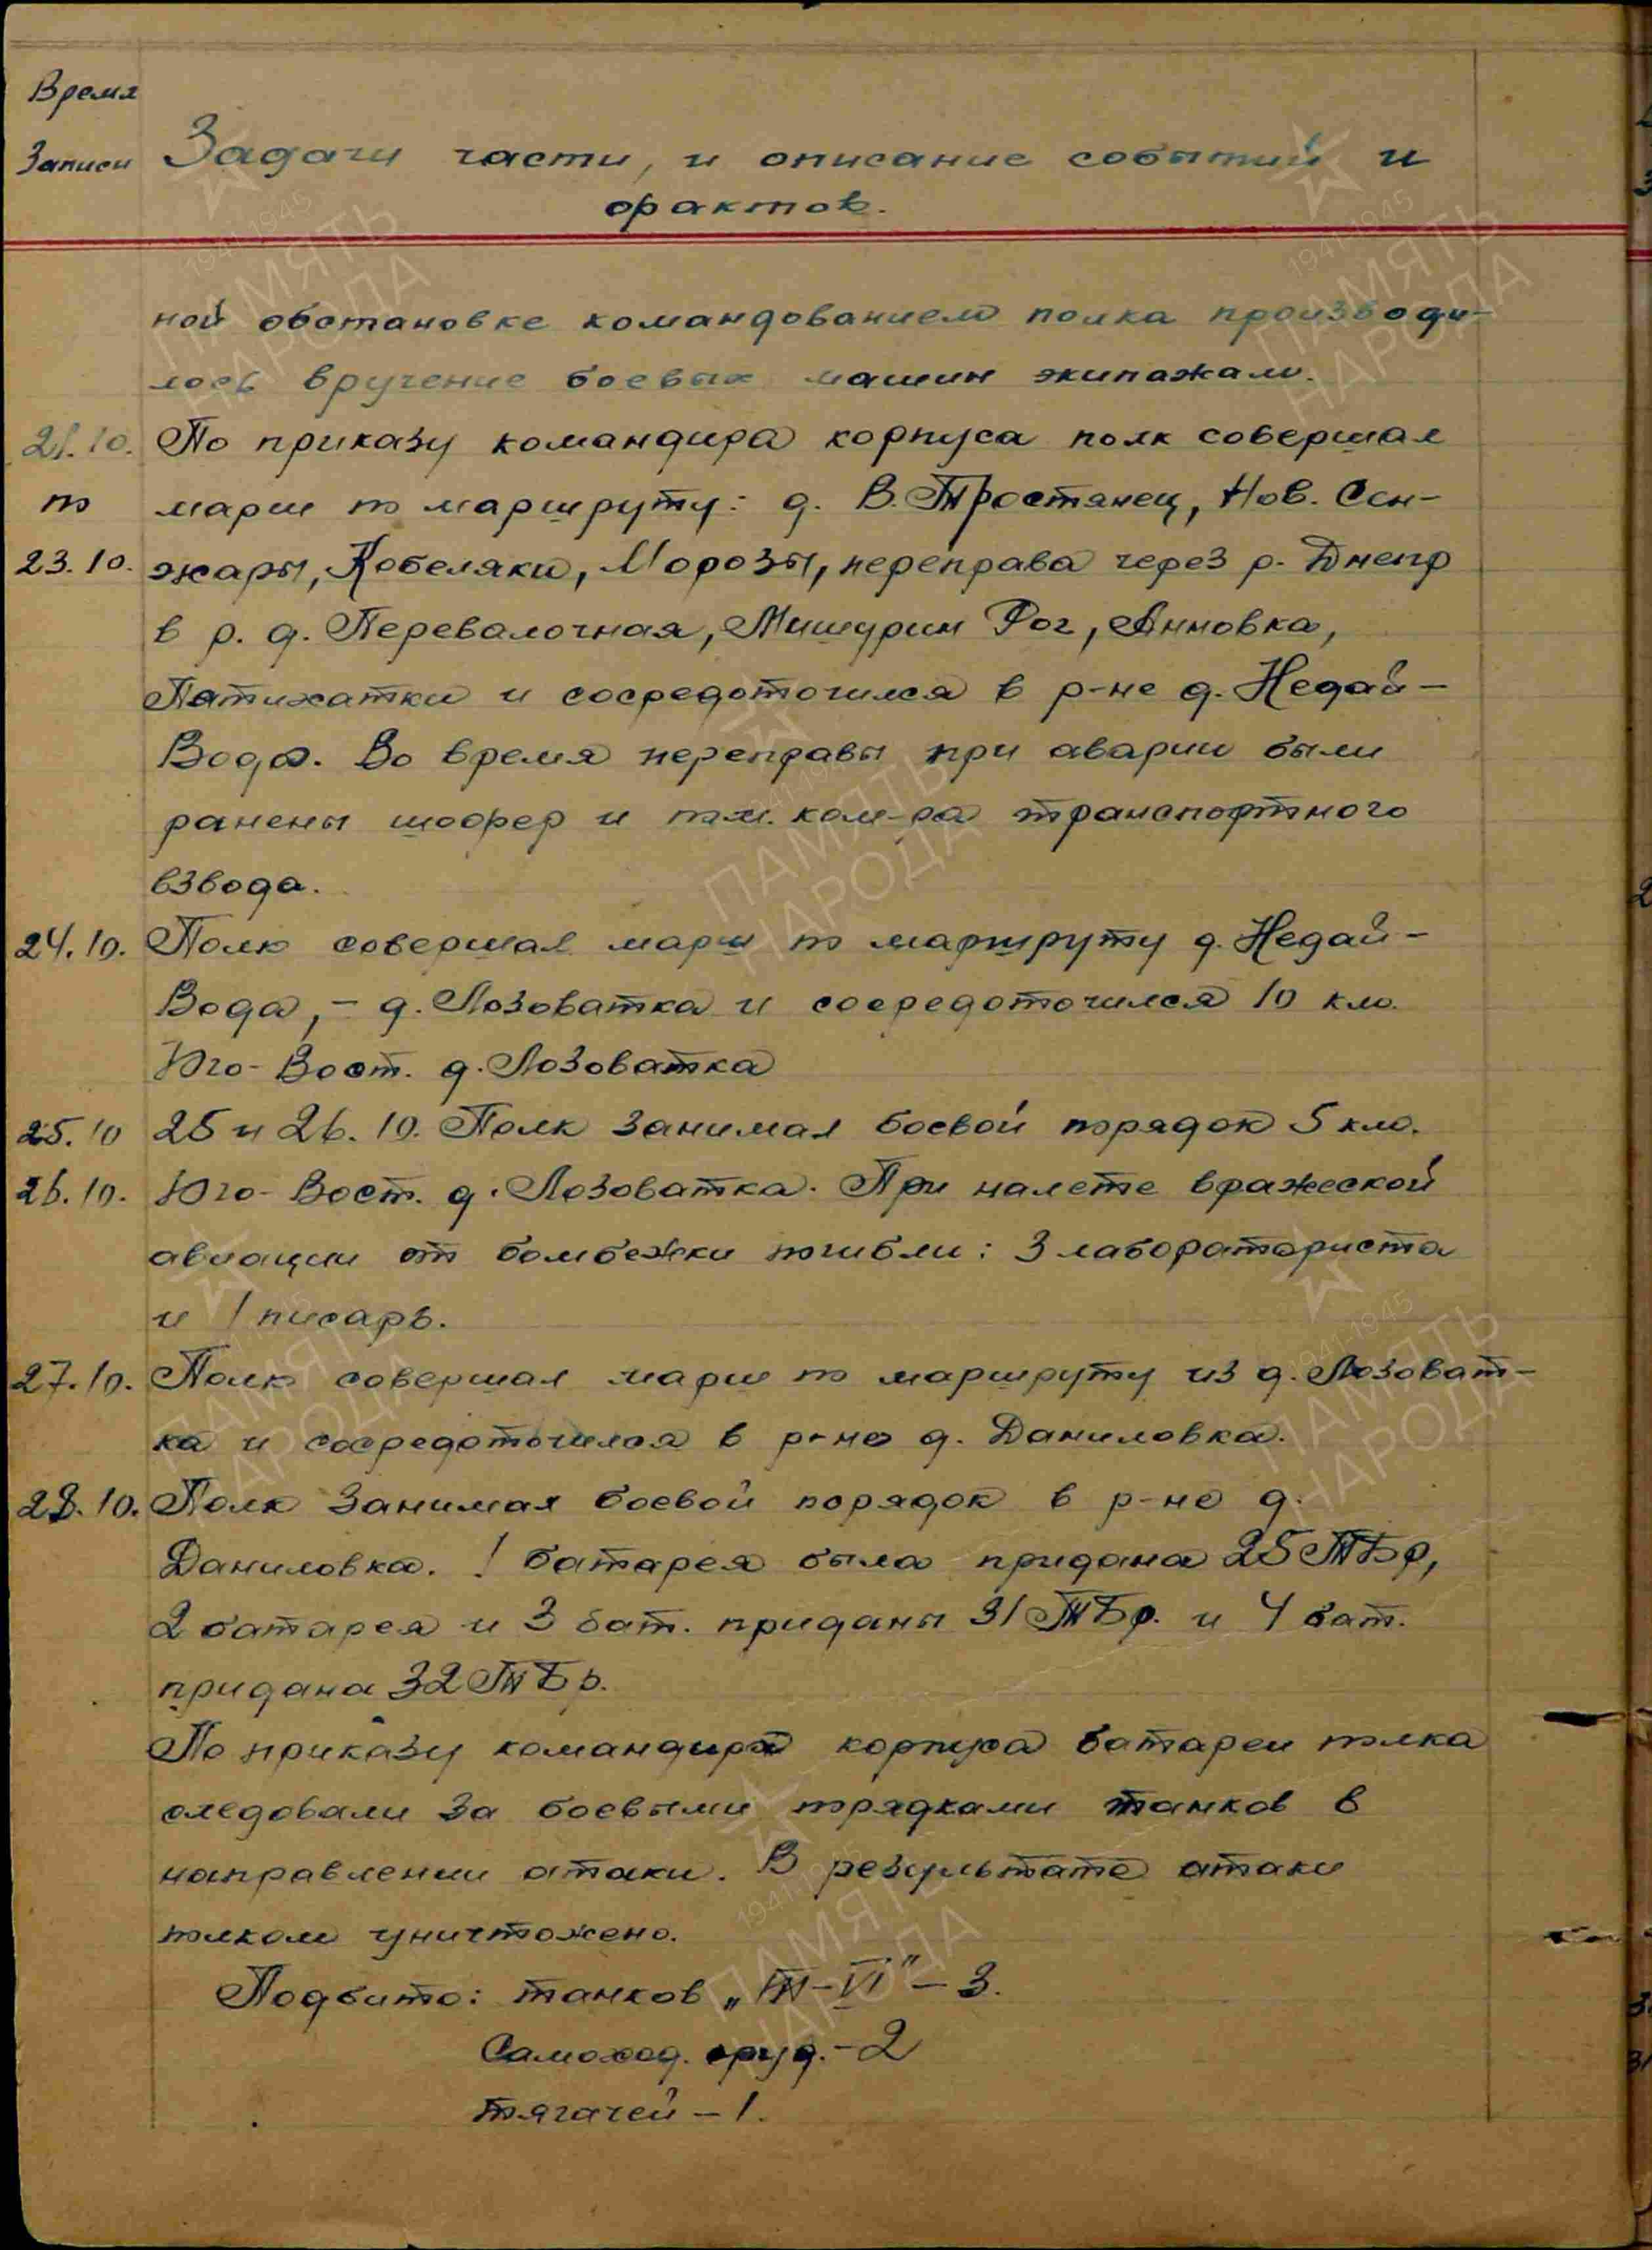 Время
Записи
Задачи части, и описание событий и
фактов.
ной обстановке командованием полка производи-
лось вручение боевых машин экипажам.
21.10. По приказу командира корпуса полк совершал
по марш по маршруту: д. В. Тростянец, Нов. Сен-
23.10. жары, Кобеляки, Морозы, переправа через р. Днепр
в р. д. Перевалочная, Мишурин Рог, Анновка,
Пятихатки и сосредоточился в р-не д. Недай-
Вода. Во время переправы при аварии были
ранены шофер и пом. ком-ра транспортного
взвода.
24.10. Полк совершал марш по маршруту д. Недай-
Вода, - д. Лозоватка и сосредоточился 10 км.
Юго-Вост. д. Лозоватка
25.10 25 и 26.10. Полк занимал боевой порядок 5 км.
26.10. Юго-Вост. д. Лозоватка. При налете вражеской
авиации от бомбежки погибли: 3 лабораториста
и 1 писарь.
27.10. Полк совершал марш по маршруту из д. Лозоват-
ка и сосредоточился в р-не д. Даниловка.
28.10. Полк занимал боевой порядок в р-не д.
Даниловка. 1 батарея была придана 25 ТБр,
2 батарея и 3 бат. приданы 31 ТБр. и 4 бат.
придана 32 ТБр.
По приказу командира корпуса батареи полка
следовали за боевыми порядками танков в
направлении атаки. В результате атаки
полком уничтожено.
Подбито: танков „ -VI" - 3.
Самоход. оруд. - 2
тягачей - 1.
1941-1945
ПАМЯТЬ
НАРОДА